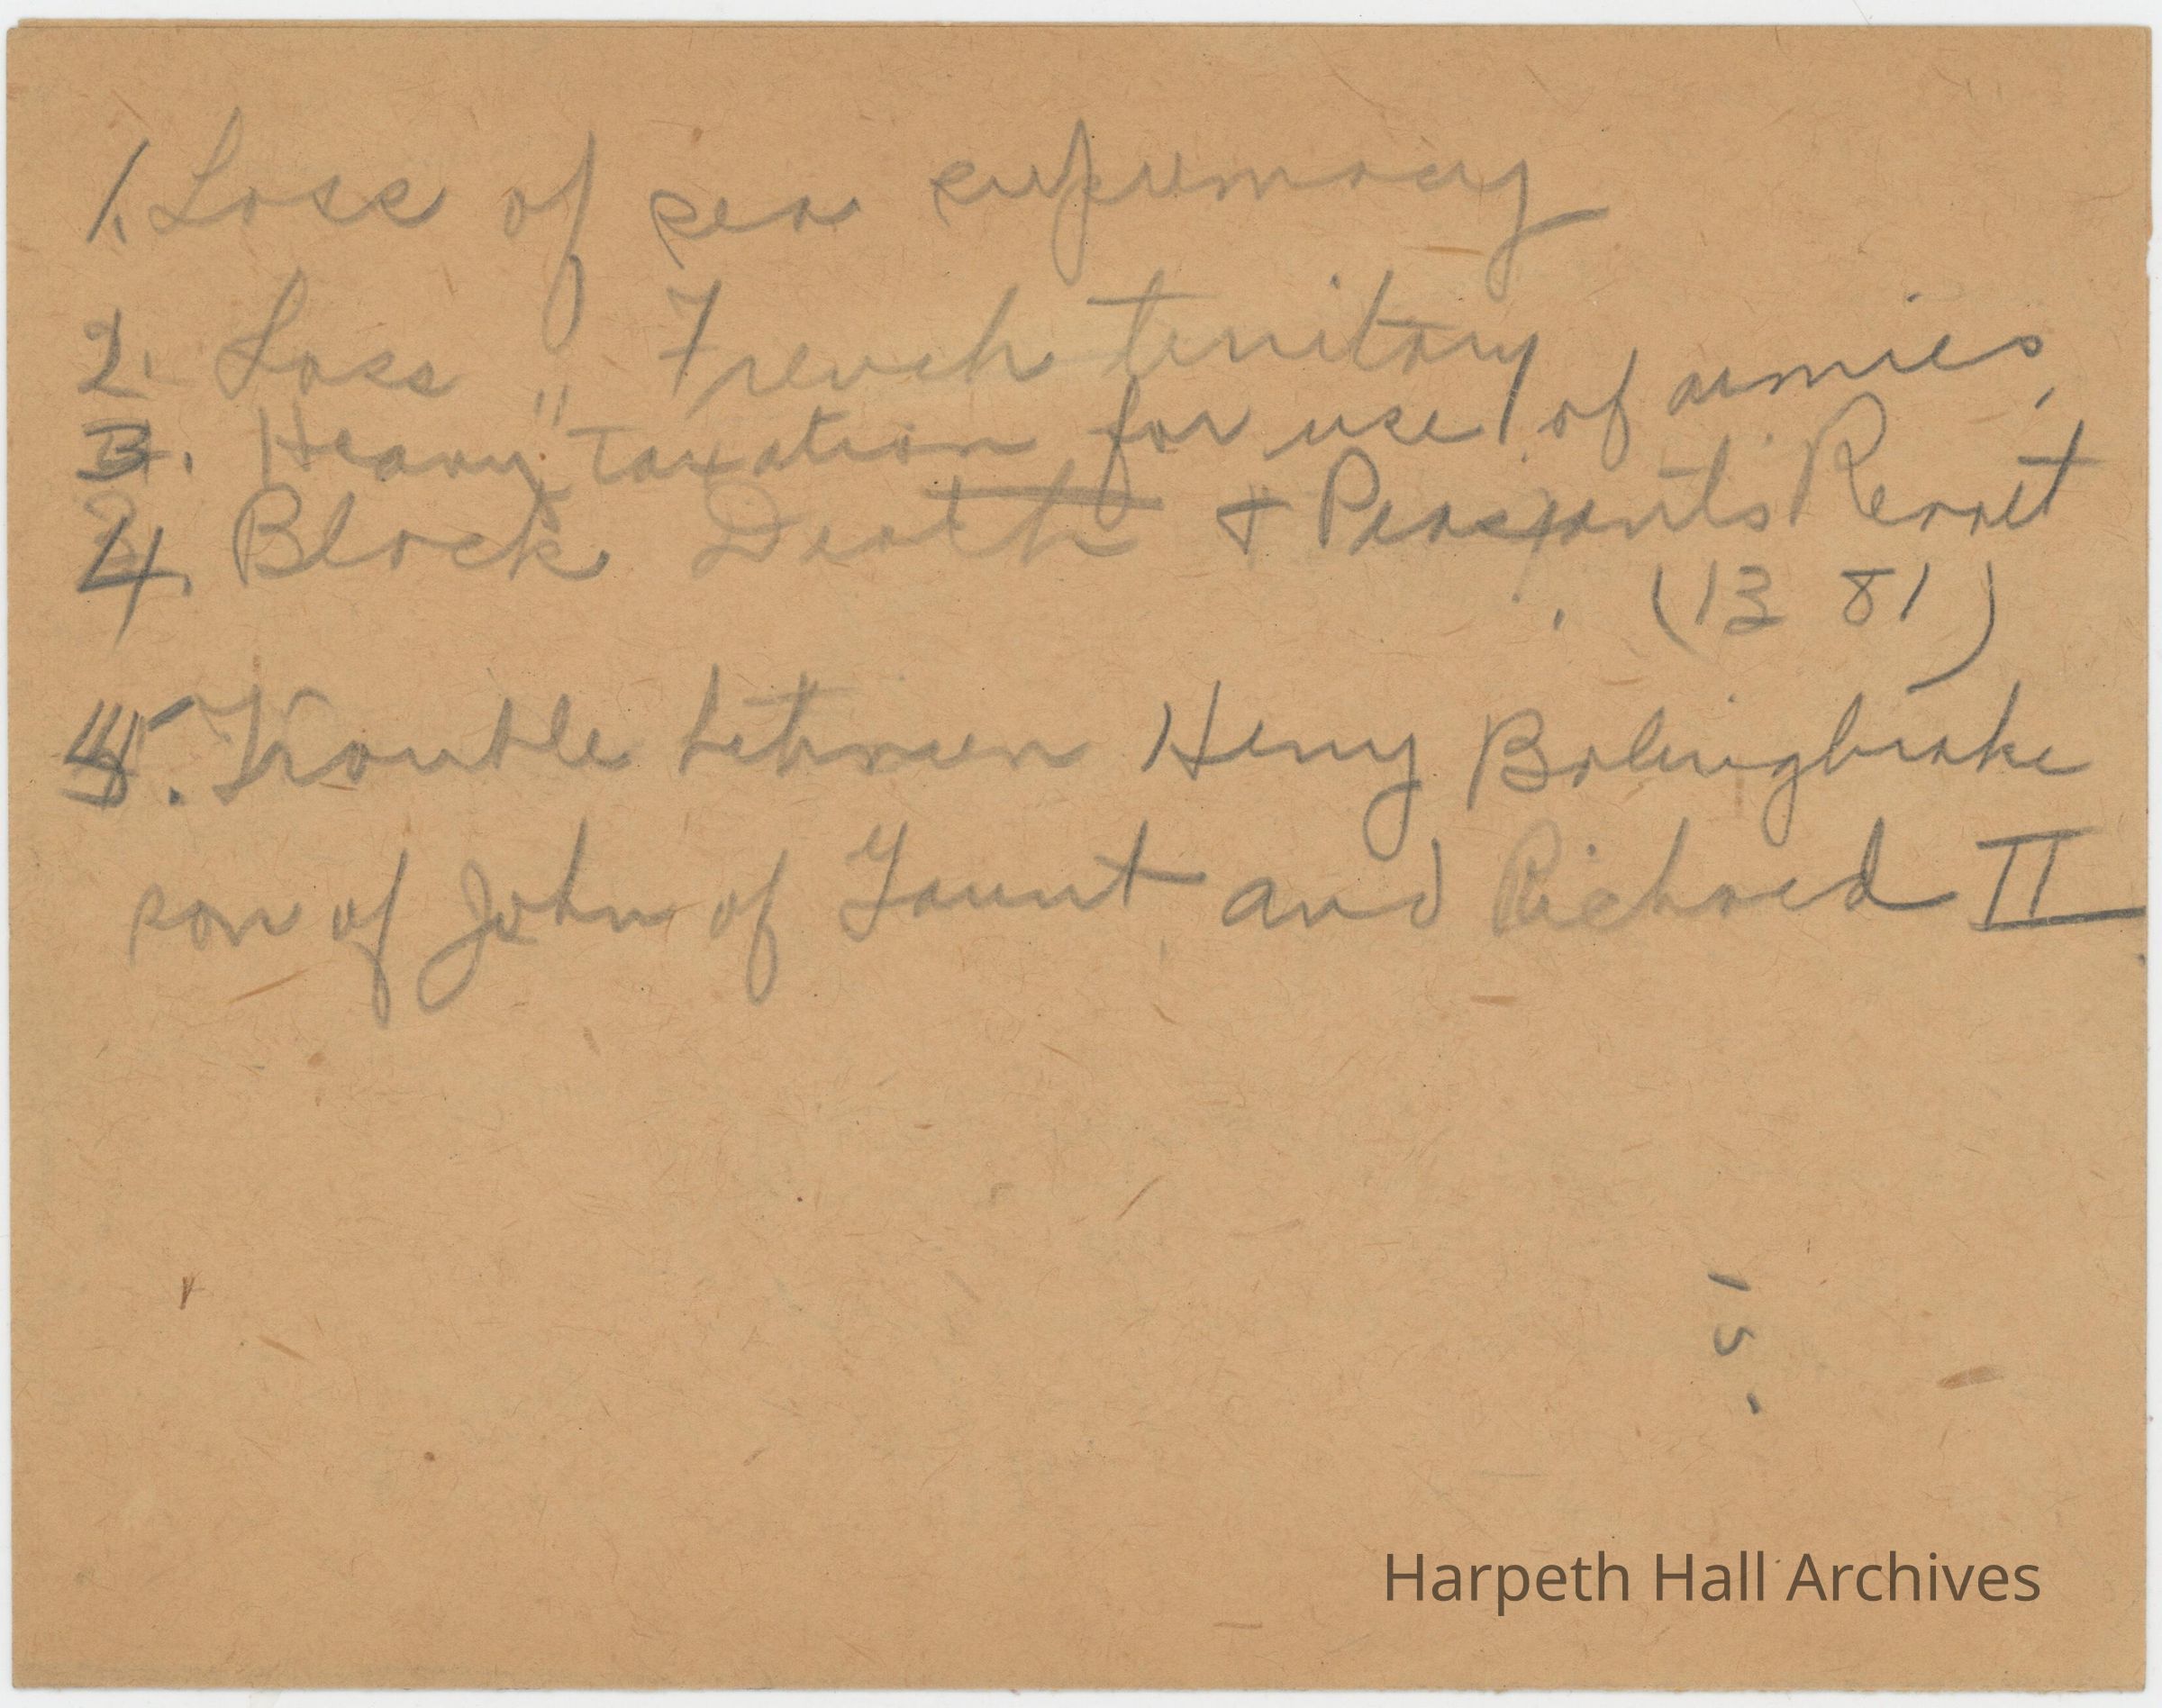 1. Loss of sea supremacy
2. Loss " French territory
3. Heavy taxation for use of armies,
4. Black Death & Peasants Revolt
(1381)
5. Trouble between Henry Bolingbroke
son of John of Gaunt and Richard II
Harpeth Hall Archives